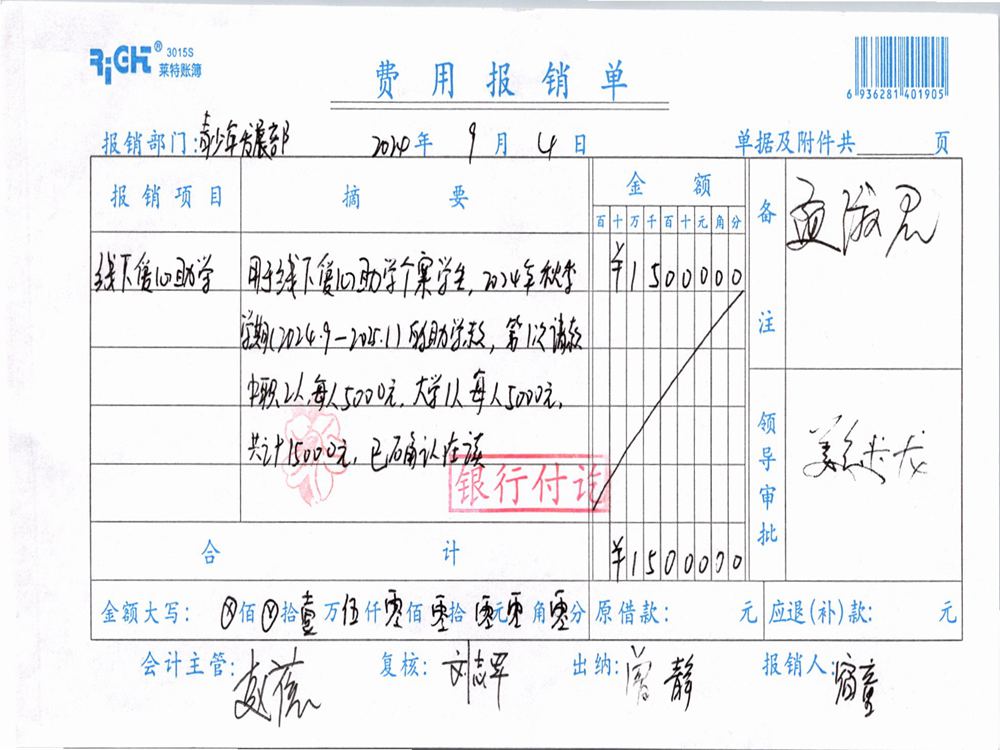 RiGHt® 3015S
莱特账簿
费用报销单
6 936281 401905
报销部门:青少年发展部 2024年 9月 4日 单据及附件共 页
报销项目 摘要 金额 备注
百十万千百十元角分
线下僾心助学 用于线下僾心助学个案学生,2024年秋季 ¥1500000
学期(2024.9-2025.1)的助学款,第1次请款
中职2人,每人5000元,大学1人每人5000元,
共计15000元,已确认在读
银行付讫
领导审批
合计 ¥1500000
金额大写: ⊗佰⊗拾壹万伍仟零佰零拾零元零角零分 原借款: 元 应退(补)款: 元
会计主管: 复核: 刘志军 出纳: 曾静 报销人: